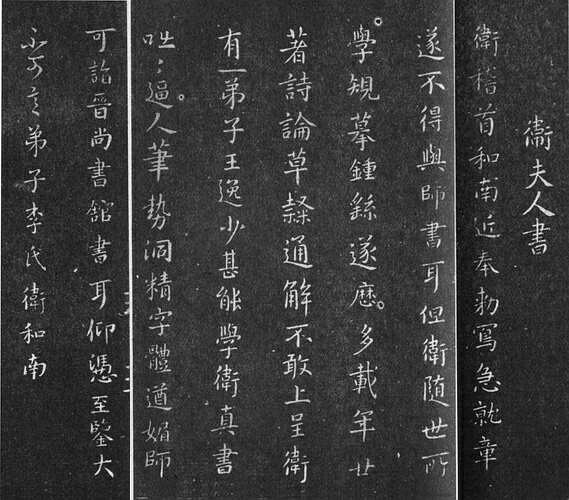 衞夫人書
衛稽首和南近奉勑寫急就章
遂不得與師書耳但衛随世所
學規摹鍾繇遂歷多載年廿
著詩論草隸通解不敢上呈衛
有一弟子王逸少甚能學衛真書
咄〻逼人筆勢洞精字體遒媚師
可詣晉尚書舘書耳仰憑至鑒大
不可言弟子李氏衛和南